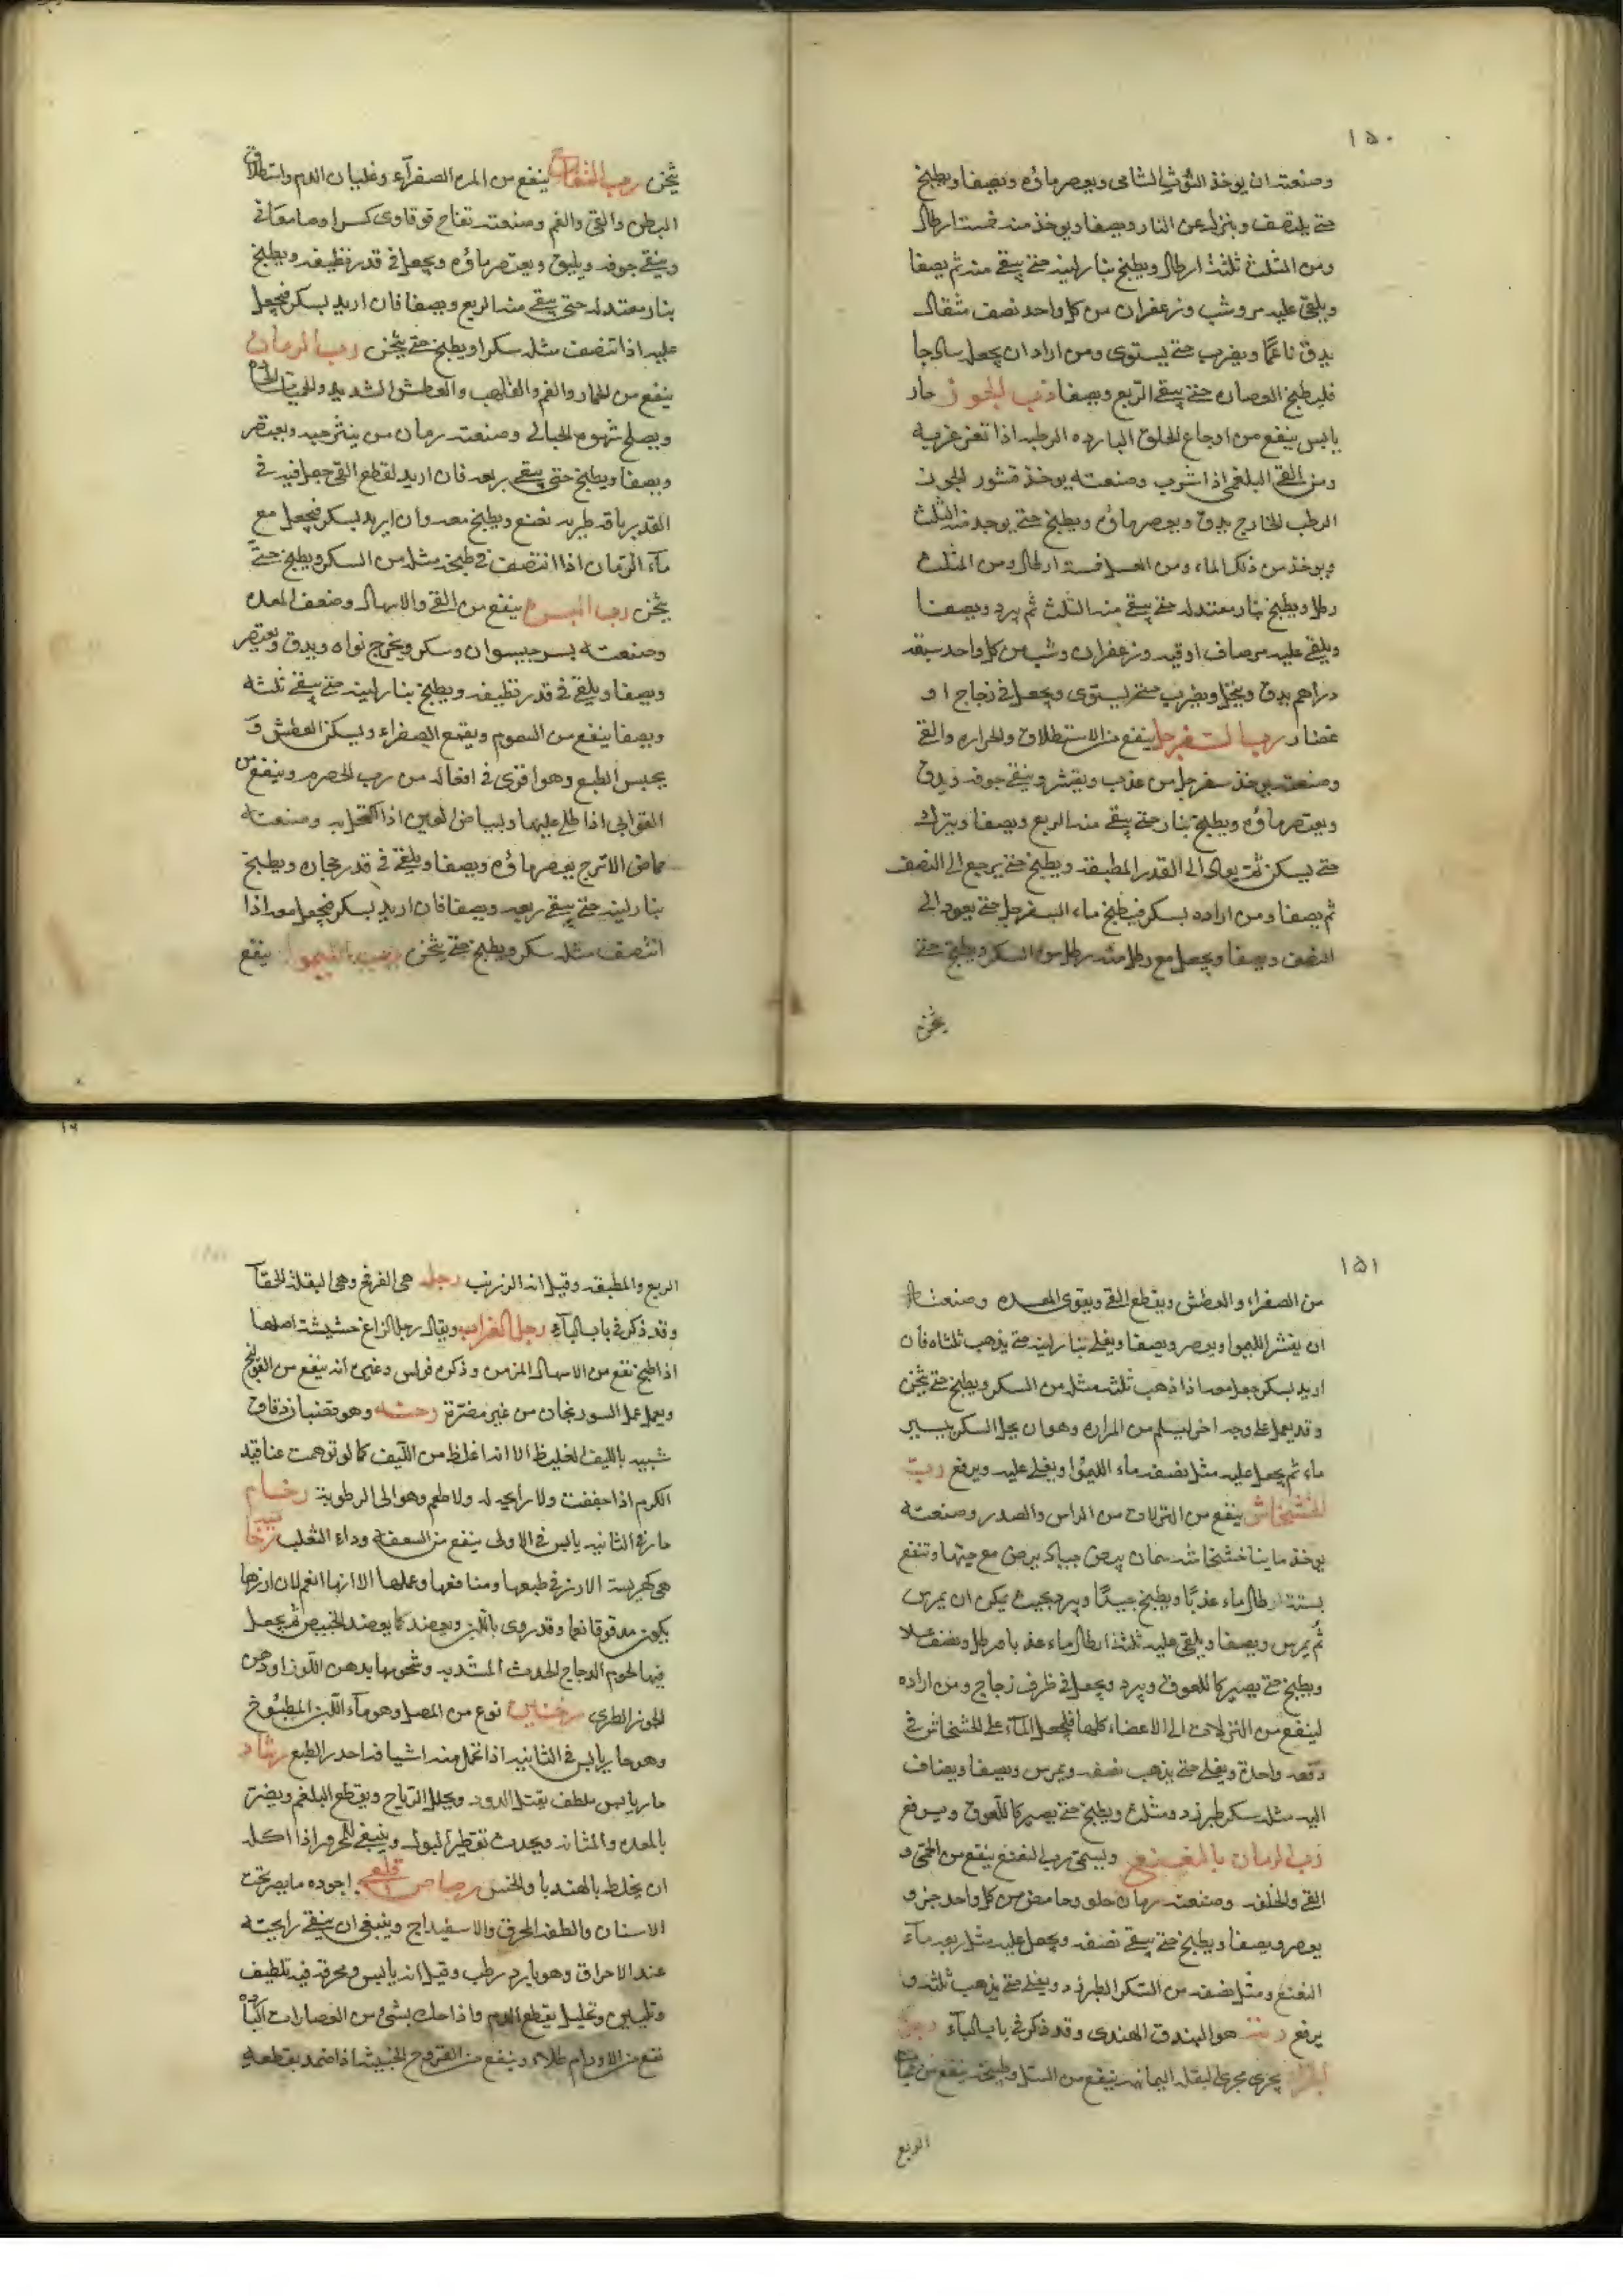 ١٥٠
وصنعته ان يوخذ التوث الشامى ويعصر ماؤه ويصفا ويطبخ
حتى ينتصف وينزل عن النار ويصفا ويوخذ منه خمسة ارطال
ومن المثلث ثلثة ارطال ويطبخ بنار لينه حتى يبقى منه ثم يصفا
ويلقى عليه مر وشب وزعفران من كل واحد نصف مثقال
يدق ناعمًا ويضرب حتى يستوى ومن اراد ان يجعل ساذجا
فليطبخ العصاره حتى يبقى الربع ويصفا رب الجوز حار
يابس ينفع من اوجاع الحلق البارده الرطبه اذا تغرغر به
ومن القئ البلغمى اذا شرب وصنعته يوخذ قشور الجوز
الرطب الخارج يدق ويعصر ماؤه ويطبخ حتى يوجد منه الثلث
ويوخذ من ذلك الماء ومن العسل ستة ارطال ومن المثلث
رطل ويطبخ بنار معتدله حتى يبقى منه الثلث ثم يبرد ويصفا
ويلقى عليه مر صاف اوقيه وزعفران وشب من كل واحد سبعه
دراهم يدق وينخل ويضرب حتى يستوى ويجعل فى زجاج او
غضار رب السفرجل ينفع من الاستطلاق والحراره والقئ
وصنعته يوخذ سفرجل من عذب ويقشر وينقى جوفه ويدق
ويعتصر ماؤه ويطبخ بنار حتى يبقى منه الربع ويصفا ويترك
حتى يسكن ثم يعاد الى القدر المطبقه ويطبخ حتى يرجع الى النصف
ثم يصفا ومن اراده بسكر فيطبخ ماء السفرجل حتى يعود الى
النصف ويصفا ويجعل مع رطل منه رطل من السكر ويطبخ حتى
يثخن
يثخن رب التفاح ينفع من المره الصفرآء وغليان الدم واستطلاق
البطن والقئ والغم وصنعته تفاح قوقاوى كسرا وصامغانى
وينقى جوفه ويدق ويعتصر ماؤه ويجعل فى قدر نظيفه ويطبخ
بنار معتدله حتى يبقى منه الربع ويصفا فان اريد بسكر فيجعل
عليه اذا تنصف مثله سكرا ويطبخ حتى يثخن رب الرمان
ينفع من الخمار والغم والتلهب والعطش الشديد والحميات الحاره
ويصلح شهوه الحبالى وصنعته رمان من ينثر حبه ويعتصر
ويصفا ويطبخ حتى يبقى ربعه فان اريد لقطع القئ جعل فيه فى
القدر باقه طريه نعنع ويطبخ معه وان اريد بسكر فيجعل مع
مآء الرمان اذا انتصف فى طبخه مثله من السكر ويطبخ حتى
يثخن رب البسر ينفع من القئ والاسهال وضعف المعده
وصنعته بسر جيسوان وسكر ويخرج نواه ويدق ويعتصر
ويصفا ويلقى فى قدر نظيفه ويطبخ بنار لينه حتى يبقى ثلثه
ويصفا ينفع من السموم ويقمع الصفراء ويسكن العطش و
يحبس الطبع وهو اقوى فى افعاله من رب الحصرم وينفع من
القوابى اذا طلى عليها ولبياض العين اذا اكتحل به وصنعته
حماض الاترج يعصر ماؤه ويصفا ويلقى فى قدر حجاره ويطبخ
بنار لينه حتى يبقى ربعه ويصفا فان اريد بسكر فيجعل معه اذا
انتصف مثله سكر ويطبخ حتى يثخن رب الليموا ينفع
١٥١
من الصفراء والعطش ويقطع القئ ويقوى المعده وصنعته
ان يقشر الليموا ويعصر ويصفا ويغلى بنار لينه حتى يذهب ثلثاه فان
اريد بسكر جعل معه اذا ذهب ثلثه مثله من السكر ويطبخ حتى يثخن
وقد يعمل على وجه اخر ليسلم من المراره وهو ان يحل السكر بيسير
ماء ثم يجعل عليه مثل نصفه ماء الليموا ويغلى عليه ويرفع رب
الخشخاش ينفع من النزلات من الراس والصدر وصنعته
يوخذ ما ينا خشخاشه سمان بيض جياد يرض مع حبتها وتنقع
بستة ارطال ماء عذبًا ويطبخ جيدًا ويبرد بحيث يمكن ان يمرس
ثم يمرس ويصفا ويلقى عليه ثلثة ارطال ماء عذبا ورطل ونصف عسلا
ويطبخ حتى يصير كاللعوق ويبرد ويجعل فى ظرف زجاج ومن اراده
لينفع من النزلات الى الاعضاء كلها فليجعل المآء على الخشخاش فى
دفعه واحدة ويغلى حتى يذهب نصفه ويمرس ويصفا ويضاف
اليه مثله سكر طبرزد ومثلث ويطبخ حتى يصير كاللعوق ويرفع
رب الرمان بالنعنع ويسمى رب النعنع ينفع من الحمى و
القئ والخلفه وصنعته رمان حلو وحامض من كل واحد جزو
يعصر ويصفا ويطبخ حتى يبقى نصفه ويجعل عليه مثل ربعه مآء
النعنع ومثل نصفه من السكر الطبرزد ويغلى حتى يذهب ثلثه و
يرفع رته هو البندق الهندى وقد ذكر فى باب البآء رجل
يجرى مجرى البقله اليمانيه ينفع من السل وطبيخه ينفع من حميات
الربع
الربع والمطبقه وقيل انه الزرنب رجله هى الفرفخ وهى البقلة الحمقآ
وقد ذكر فى باب البآء رجل الغراب ويقال رجل الزاغ حشيشة اصلها
اذا طبخ نفع من الاسهال المزمن وذكر فولس وغيره انه ينفع من القولنج
ويعمل عمل السورنجان من غير مضرة وهو قضبان دقاق
شبيه بالليف الغليظ الا انه اغلظ من الليف كما لو توهمت عناقيد
الكرم اذا جففت ولا رايحه له ولا طعم وهو الى الرطوبة رخام
حار فى الثانيه يابس فى الاولى ينفع من السعفه وداء الثعلب
هى كهريسة الارز فى طبعها ومنافعها وعملها الا انها انعم لان ارزها
يكون مدقوقا ناعما وقد روى باللبن ويعصد كما يعصد الخبيص ثم يجعل
فيها لحوم الدجاج الحدث وشحومها بدهن اللوز او دهن
الجوز الطرى رخبين نوع من المصل وهو مآء اللبن المطبوخ
وهو حار يابس فى الثانيه اذا تحمل منه اشيافه احدر الطبع رشاد
حار يابس ملطف يقتل الدود ويحلل الرياح ويقطع البلغم ويضر
بالمعده والمثانه ويحدث تقطير البول وينبغى للمحرور اذا اكله
ان يخلط بالهندبا والخس رصاص قلعى اجوده ما يصر تحت
الاسنان والطفه المحرق والاسفيداج وينبغى ان يتقى رايحته
عند الاحراق وهو بارد رطب وقيل انه يابس ومحرقه فيه تلطيف
وتليين وتحليل يقطع الدم واذا حك بشئ من العصارات البارده
نفع من الاورام طلاء وينفع من القروح الخبيثه اذا ضمد بقطعه